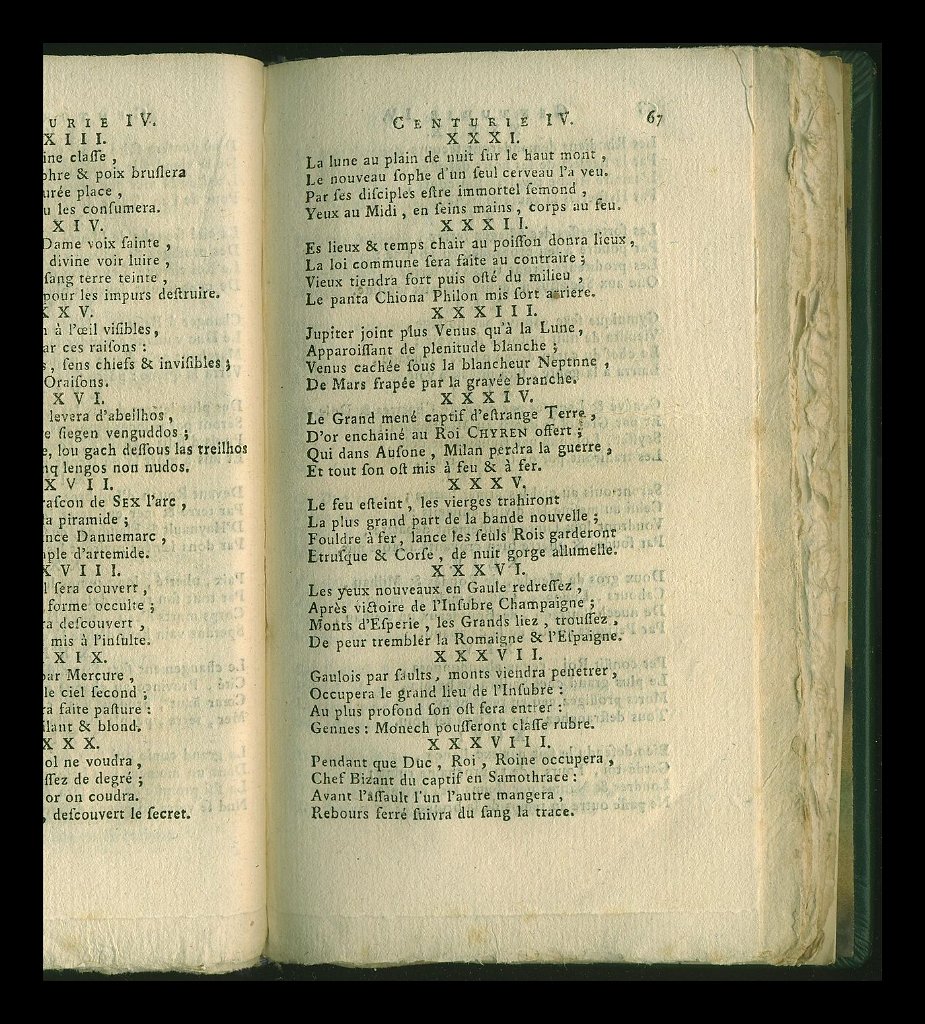 URIE IV.
XIII.
ine claſſe,
phre & poix bruſlera
urée place,
u les conſumera.
XIV.
Dame voix ſainte,
divine voir luire,
ſang terre teinte,
pour les impurs deſtruire.
XXV.
à l'œil viſibles,
ar ces raiſons :
, ſens chiefs & inviſibles ;
Oraiſons.
XVI.
levera d'abeilhos,
e ſiegen venguddos ;
e, lou gach deſſous las treilhos
nq lengos non nudos.
XVII.
raſcon de SEX l'arc,
la piramide ;
ince Dannemarc,
ple d'artemide.
XVIII.
l ſera couvert,
forme occulte ;
ra deſcouvert,
mis à l'inſulte.
XIX.
par Mercure,
le ciel ſecond ;
ra faite paſture :
ilant & blond.
XXX.
ol ne voudra,
ſſez de degré ;
or on coudra.
, deſcouvert le ſecret.
CENTURIE IV. 67
XXXI.
La lune au plain de nuit ſur le haut mont,
Le nouveau ſophe d'un ſeul cerveau l'a veu.
Par ſes diſciples eſtre immortel ſemond,
Yeux au Midi, en ſeins mains, corps au feu.
XXXII.
Es lieux & temps chair au poiſſon donra lieux,
La loi commune ſera faite au contraire ;
Vieux tiendra fort puis oſté du milieu,
Le panta Chiona Philon mis fort arriere.
XXXIII.
Jupiter joint plus Venus qu'à la Lune,
Apparoiſſant de plenitude blanche ;
Venus cachée ſous la blancheur Neptnne,
De Mars frapée par la gravée branche.
XXXIV.
Le Grand mené captif d'eſtrange Terre,
D'or enchainé au Roi CHYREN offert ;
Qui dans Auſone, Milan perdra la guerre,
Et tout ſon oſt mis à feu & à fer.
XXXV.
Le feu eſteint, les vierges trahiront
La plus grand part de la bande nouvelle ;
Fouldre à fer, lance les ſeuls Rois garderont
Etruſque & Corſe, de nuit gorge allumelle.
XXXVI.
Les yeux nouveaux en Gaule redreſſez,
Après victoire de l'Inſubre Champaigne ;
Monts d'Eſperie, les Grands liez, trouſſez,
De peur trembler la Romaigne & l'Eſpaigne.
XXXVII.
Gaulois par ſaults, monts viendra penetrer,
Occupera le grand lieu de l'Inſubre :
Au plus profond ſon oſt ſera entrer :
Gennes : Monech pouſſeront claſſe rubre.
XXXVIII.
Pendant que Duc, Roi, Roine occupera,
Chef Bizant du captif en Samothrace :
Avant l'aſſault l'un l'autre mangera,
Rebours ferré ſuivra du ſang la trace.